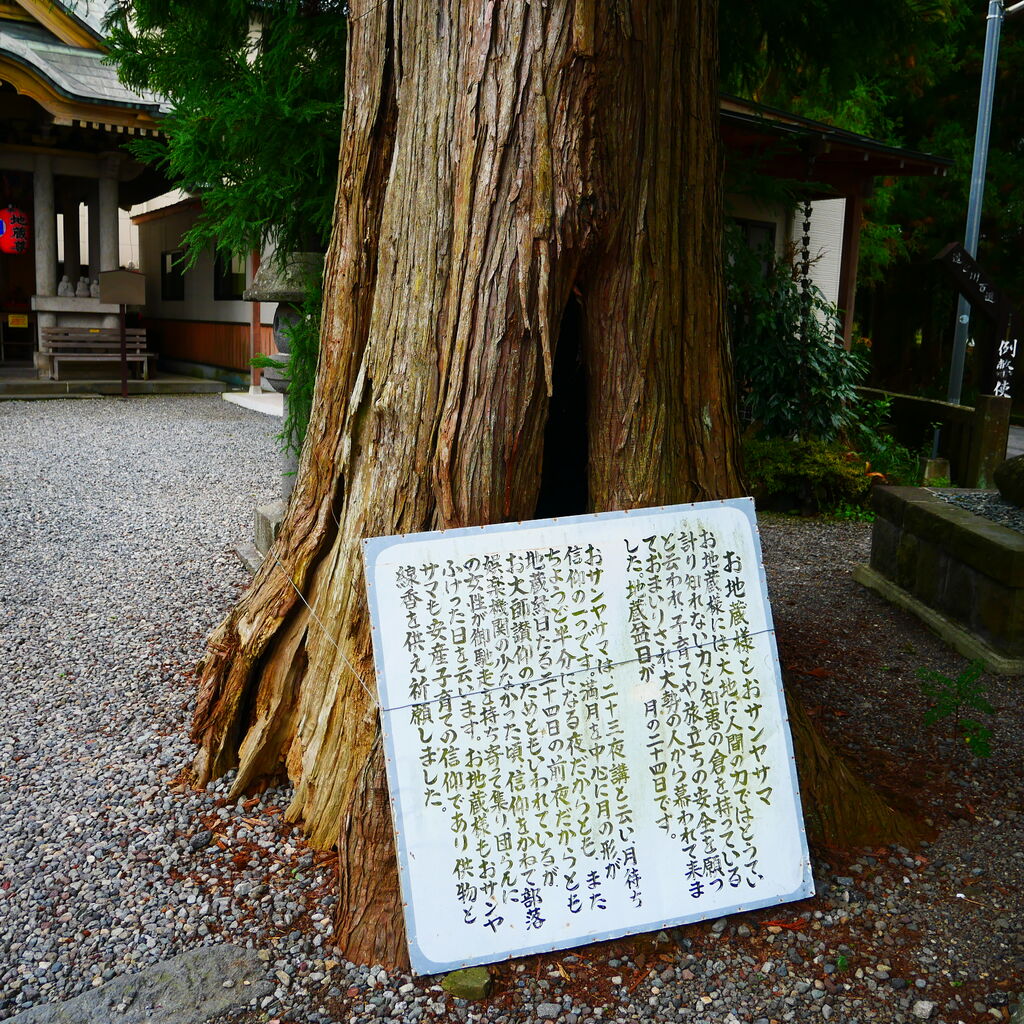 お地蔵様とおサンヤサマ
お地蔵様には大地に人間の力ではとうてい
計り知れない力と知恵の倉を持っている
と云われ、子育てや旅立ちの安全を願っ
ておまいりされ大勢の人から慕われて来ま
した。地蔵益日が 月の二十四日です。
おサンヤサマは二十三夜講と云い月待ち
信仰の一つです。満月を中心に月の形が
ちょうど半分になる夜だからとも、また
地蔵縁日たる二十四日の前夜だからとも
お大師讃仰のためともいわれているが、
娯楽機関の少なかった頃、信仰をかねて部落
の女性が御馳走を持ち寄って集り団らんに
ふけった日を云います。お地蔵様もおサンヤ
サマも安産子育ての信仰であり供物と
線香を供え祈願しました。
地蔵尊
例幣使